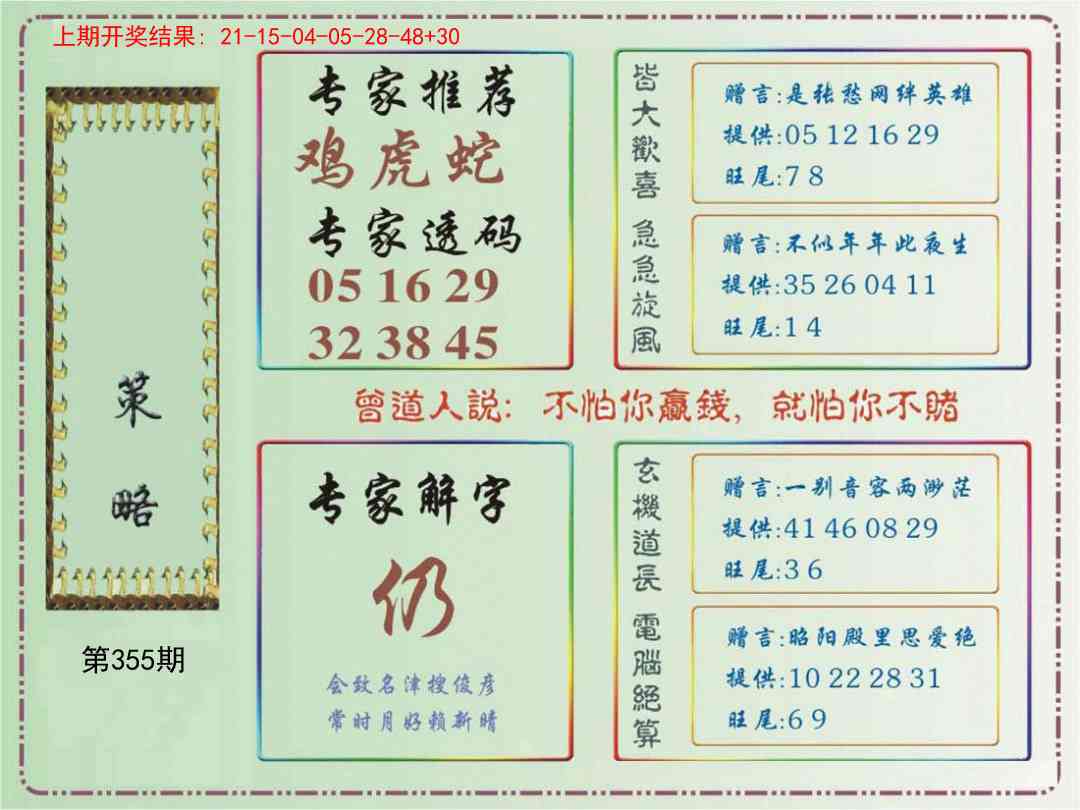 上期开奖结果: 21-15-04-05-28-48+30
策
略
第355期
专家推荐
鸡虎蛇
专家透码
05 16 29
32 38 45
皆大歡喜
赠言:是张愁网绊英雄
提供:05 12 16 29
旺尾:7 8
急急旋風
赠言:不似年年此夜生
提供:35 26 04 11
旺尾:1 4
曾道人説: 不怕你赢錢, 就怕你不賭
专家解字
仍
会致名津搜俊彦
常时月好赖新晴
玄機道長
赠言:一别音容两渺茫
提供:41 46 08 29
旺尾:3 6
電腦絕算
赠言:昭阳殿里思爱绝
提供:10 22 28 31
旺尾:6 9